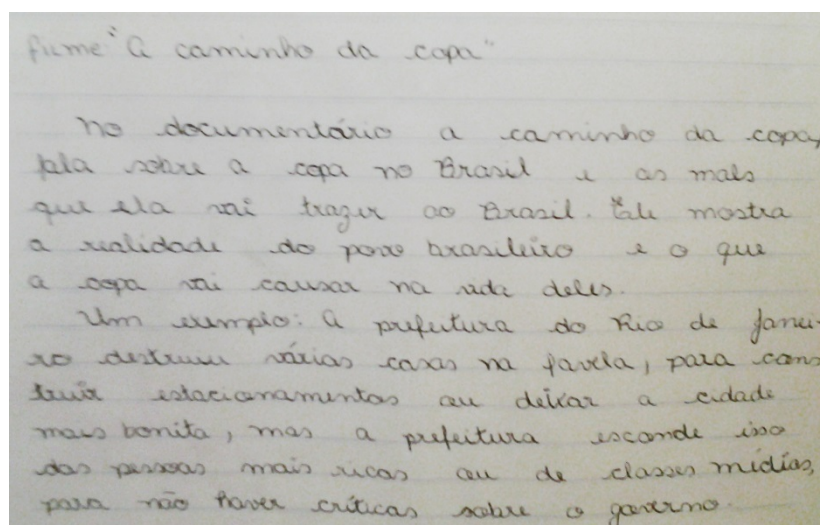 filme "A caminho da copa"
No documentário a caminho da copa,
fala sobre a copa no Brasil e as mals
que ela vai trazer ao Brasil. Ele mostra
a realidade do povo brasileiro e o que
a copa vai causar na vida deles.
Um exemplo: A prefeitura do Rio de Janei-
ro destruiu várias casas na favela, para cons
truir estacionamentos ou deixar a cidade
mais bonita, mas a prefeitura esconde isso
das pessoas mais ricas ou de classes mídias,
para não haver críticas sobre o governo.